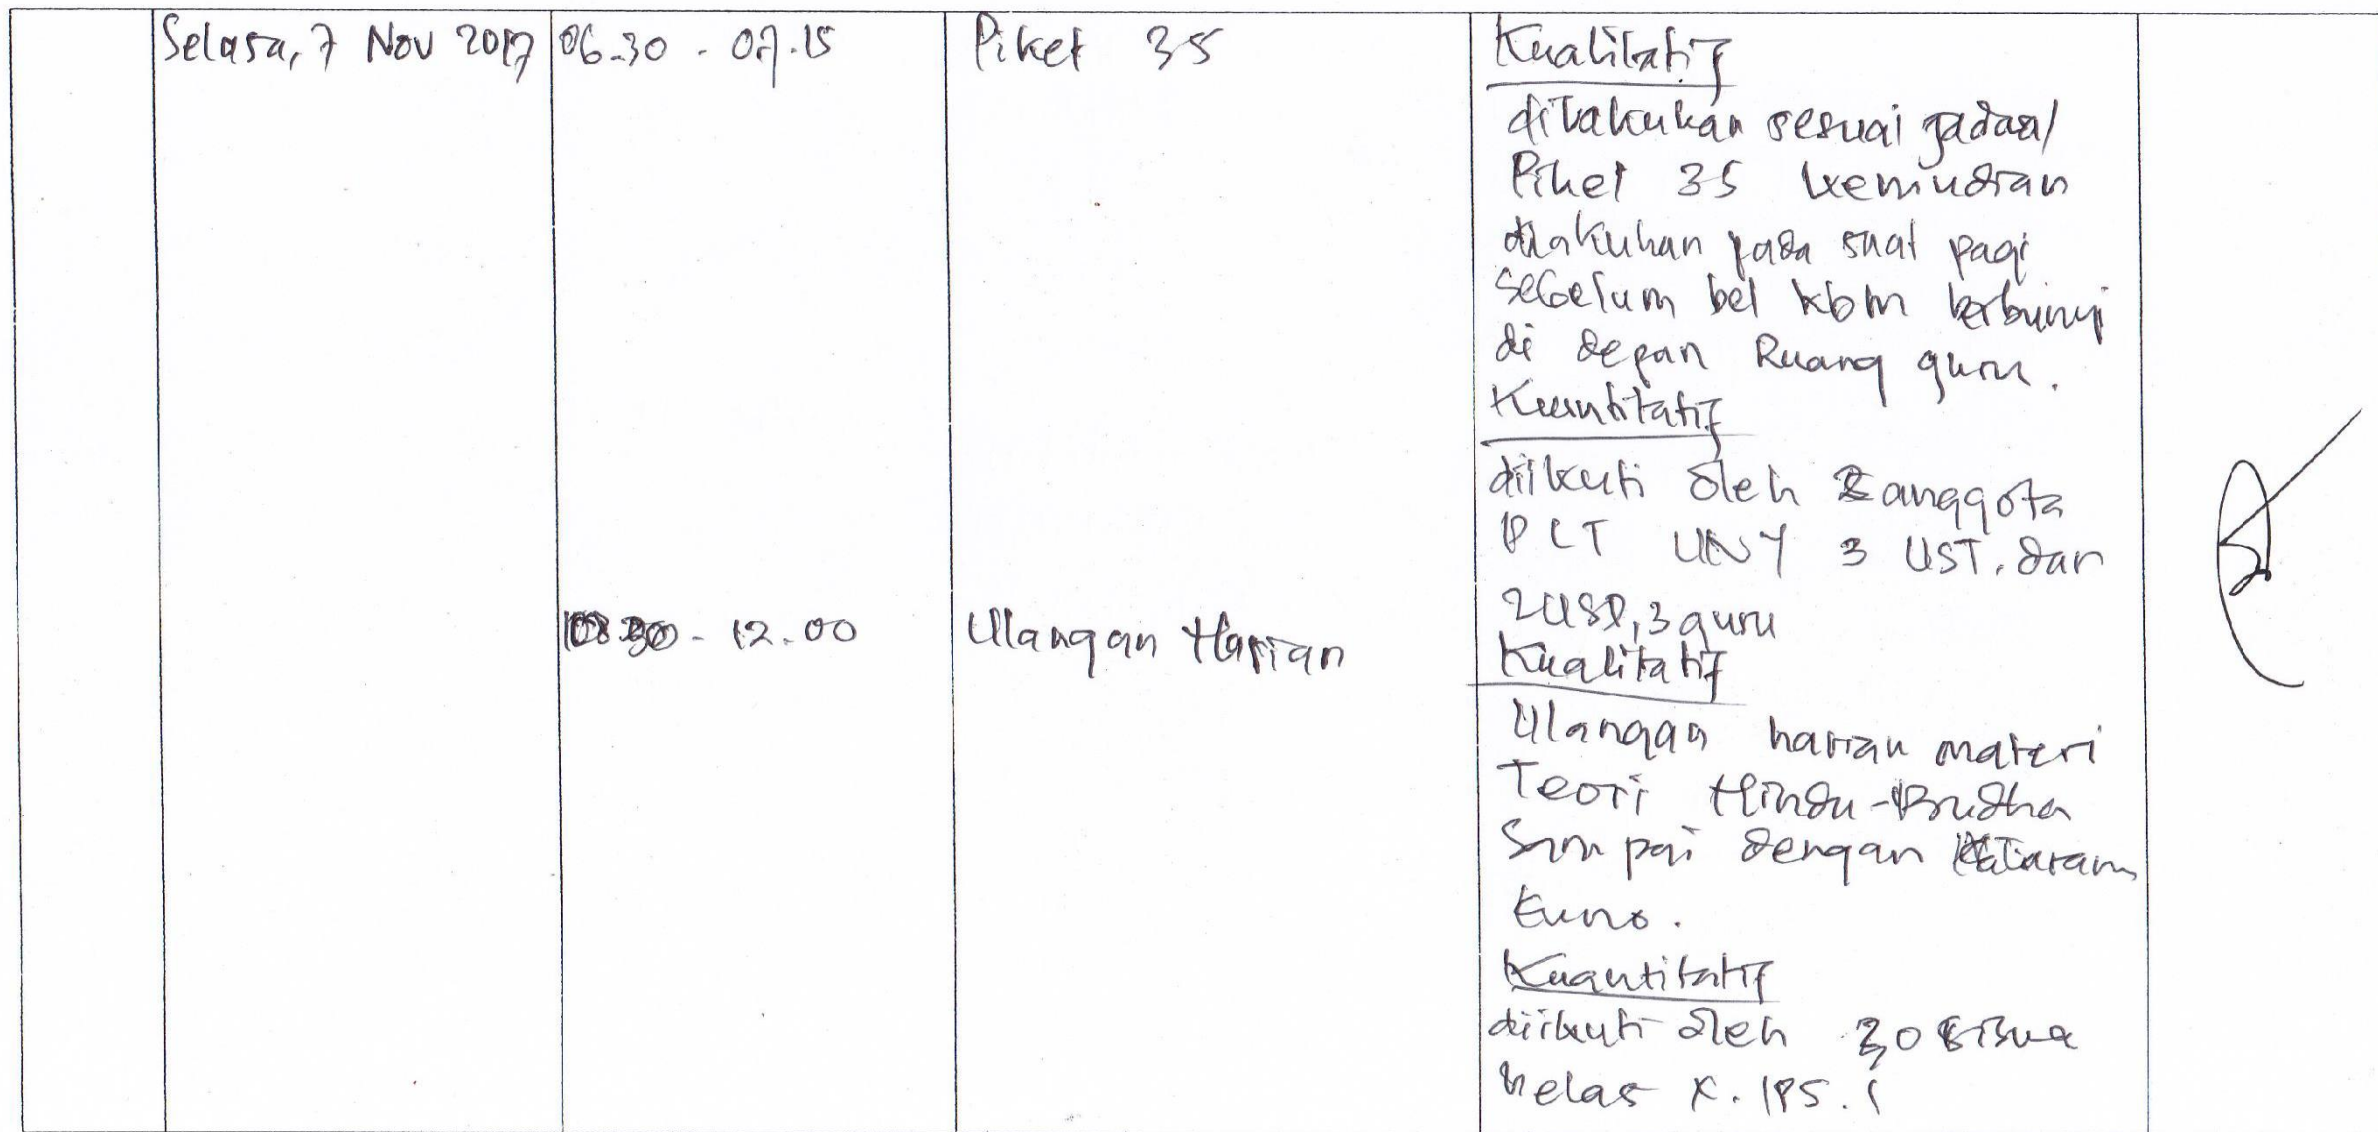 Selasa, 7 Nov 2017
06.30 - 07.15
Piket 3S
Kualitatif
dilakukan sesuai jadwal
Piket 3S kemudian
dilakukan pada saat pagi
sebelum bel kbm berbunyi
di depan Ruang guru.
Kuantitatif
diikuti oleh anggota
PLT UNY 3 UST, dan
2 USD, 3 guru
- 12.00
Ulangan Harian
Kualitatif
Ulangan harian materi
Teori Hindu-Budha
Sampai dengan Mataram
Kuno.
Kuantitatif
diikuti oleh 30 siswa
kelas X. IPS. 1